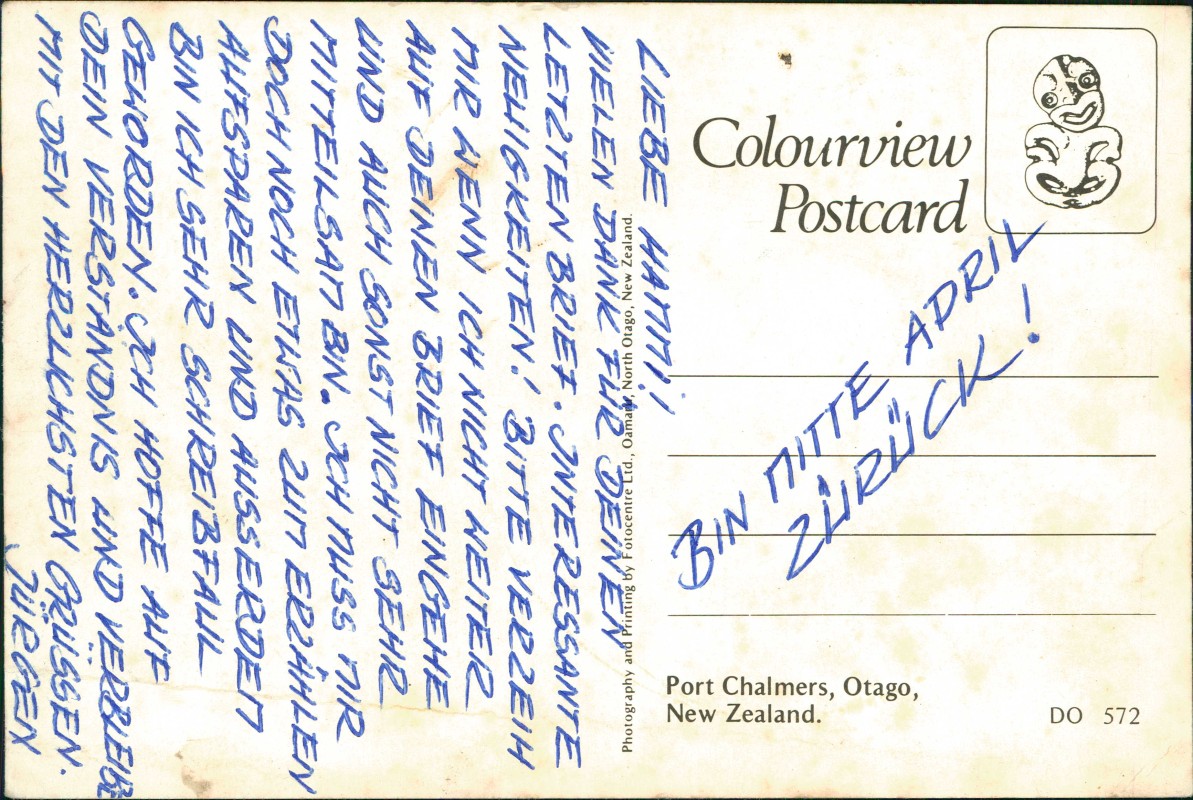 LIEBE HANNI!
VIELEN DANK FÜR DEINEN
LETZTEN BRIEF. INTERESSANTE
NEUIGKEITEN! BITTE VERZEIH
MIR WENN ICH NICHT WEITER
AUF DEINEN BRIEF EINGEHE
UND AUCH SONST NICHT SEHR
MITTEILSAM BIN. ICH MUSS MIR
DOCH NOCH ETWAS ZUM ERZÄHLEN
AUFSPAREN UND AUSSERDEM
BIN ICH SEHR SCHREIBFAUL
GEWORDEN. ICH HOFFE AUF
DEIN VERSTÄNDNIS UND VERBLEIBE
MIT DEN HERZLICHSTEN GRÜSSEN.
JÜRGEN
Photography and Printing by Fotocentre Ltd., Oamaru, North Otago, New Zealand.
Colourview
Postcard
BIN MITTE APRIL
ZURÜCK!
Port Chalmers, Otago,
New Zealand.
DO 572